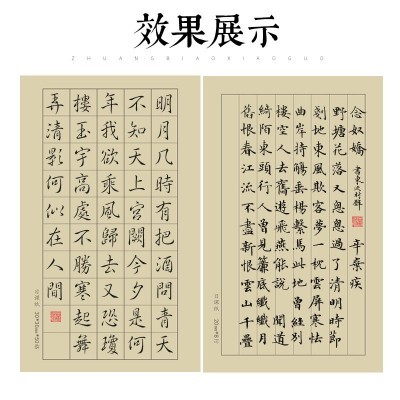 效果展示
ZHUANGBIAOXIAOGUO
明月几時有把酒問青天
不知天上宮闕今夕是何
年我欲乘風歸去又恐瓊
樓玉宇高處不勝寒起舞
弄清影何似在人間
日課紙 20*20mm*50格
念奴嬌 書東流村壁 辛棄疾
野塘花落又怱怱過了清明時節
剗地東風欺客夢一枕雲屏寒怯
曲岸持觴垂楊繫馬此地曾經別
樓空人去舊遊飛燕能說 聞道
綺陌東頭行人曾見簾底纖纖月
舊恨春江流不盡新恨雲山千疊
日課紙 20mm*8行